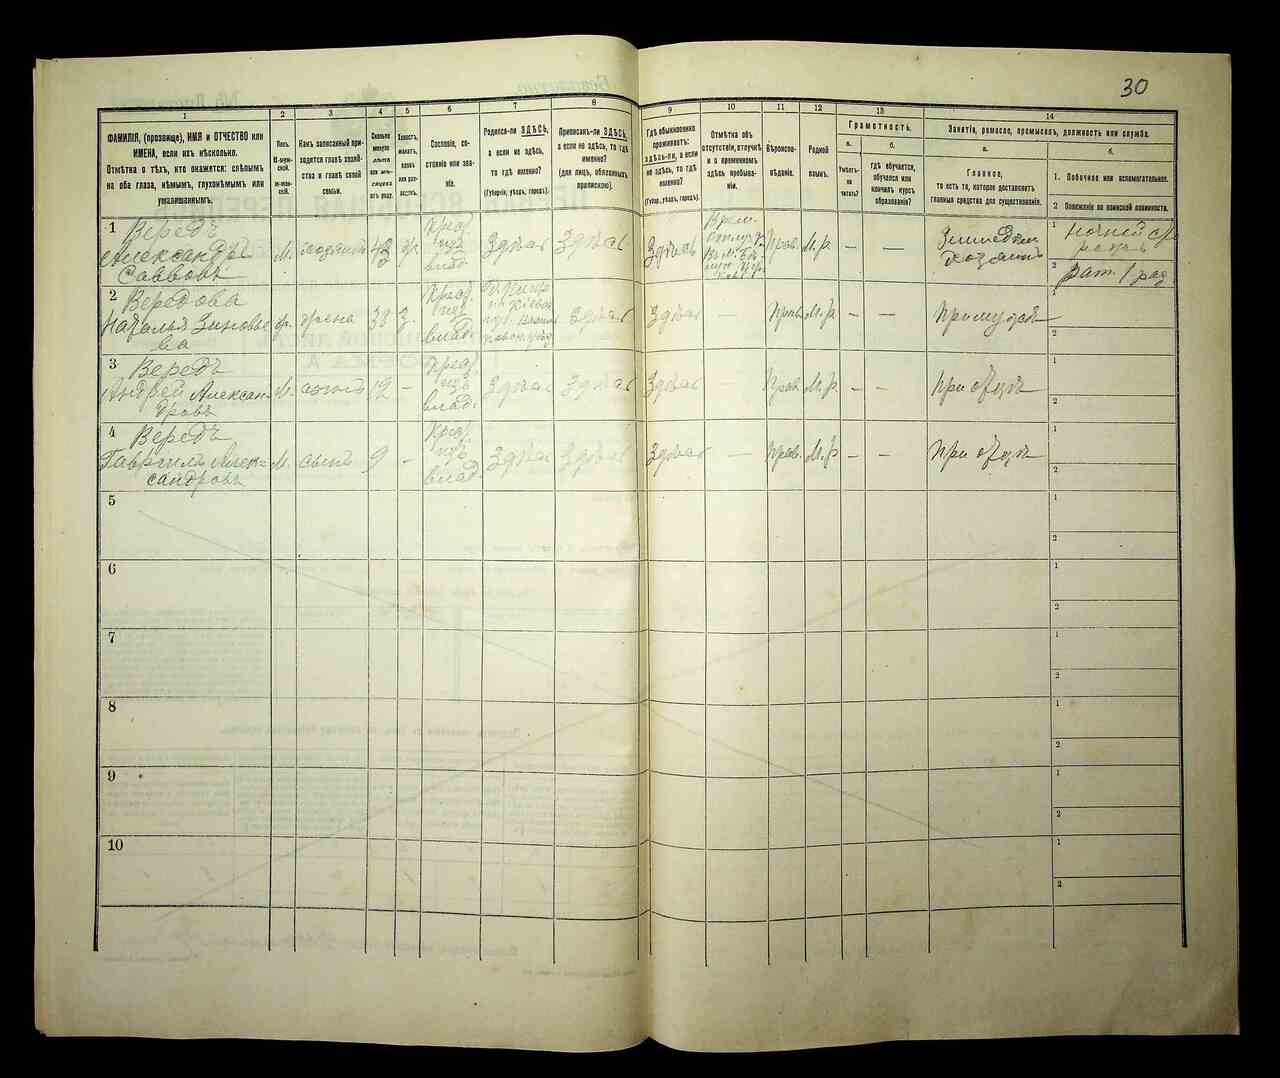 30
1
2
3
4
5
6
7
8
9
10
11
12
13
14
ФАМИЛІЯ, (прозвище), ИМЯ и ОТЧЕСТВО или
ИМЕНА, если ихъ нѣсколько.
Отмѣтка о тѣхъ, кто окажется: слѣпымъ
на оба глаза, нѣмымъ, глухонѣмымъ или
умалишаннымъ.
Полъ.
М-муж-
ской.
Ж-жен-
скій.
Какъ записанный при-
ходится главѣ хозяй-
ства и главѣ своей
семьи.
Сколько
минуло
лѣтъ
или мѣ-
сяцевъ
отъ роду.
Холостъ,
женатъ,
вдовъ
или раз-
веденъ.
Сословіе, со-
стояніе или зва-
ніе.
Родился-ли ЗДѢСЬ,
а если не здѣсь,
то гдѣ именно?
(Губернія, уѣздъ, городъ).
Приписанъ-ли ЗДѢСЬ,
а если не здѣсь, то гдѣ
именно?
(для лицъ, обязанныхъ
припискою).
Гдѣ обыкновенно
проживаетъ:
здѣсь-ли, а если
не здѣсь, то гдѣ
именно?
(Губер., уѣздъ, городъ).
Отмѣтка объ
отсутствіи, отлучкѣ
и о временномъ
здѣсь пребыва-
ніи.
Вѣроиспо-
вѣданіе.
Родной
языкъ.
Грамотность.
а.
б.
Умѣетъ-
ли
читать?
гдѣ обучается,
обучался или
кончилъ курсъ
образованія?
Занятіе, ремесло, промыселъ, должность или служба.
а.
б.
Главное,
то есть то, которое доставляетъ
главныя средства для существованія.
1. Побочное или вспомогательное.
2 Положеніе по воинской повинности.
1
Вередъ
Александръ
Саввовъ
М.
хозяинъ
43
ж.
Крес.
изъ
влад.
Здѣсь
Здѣсь
Здѣсь
Прав.
М.р.
—
—
1
2
Рат. 1 раз.
2
Вередова
Наталья Зиновье
ва
ж.
жена
33
з.
Крес.
изъ
влад.
Здѣсь
Здѣсь
—
Прав.
М.р.
—
—
При мужѣ
1
2
3
Вередъ
Андрей Алексан-
дровъ
М.
сынъ
12
—
Крес.
изъ
влад.
Здѣсь
Здѣсь
Здѣсь
—
Прав.
М.р.
—
—
При отцѣ
1
2
4
Вередъ
Гавріилъ Алек-
сандровъ
М.
сынъ
9
—
Крес.
изъ
влад.
Здѣсь
Здѣсь
Здѣсь
—
Прав.
М.р.
—
—
При отцѣ
1
2
5
1
2
6
1
2
7
1
2
8
1
2
9
1
2
10
1
2